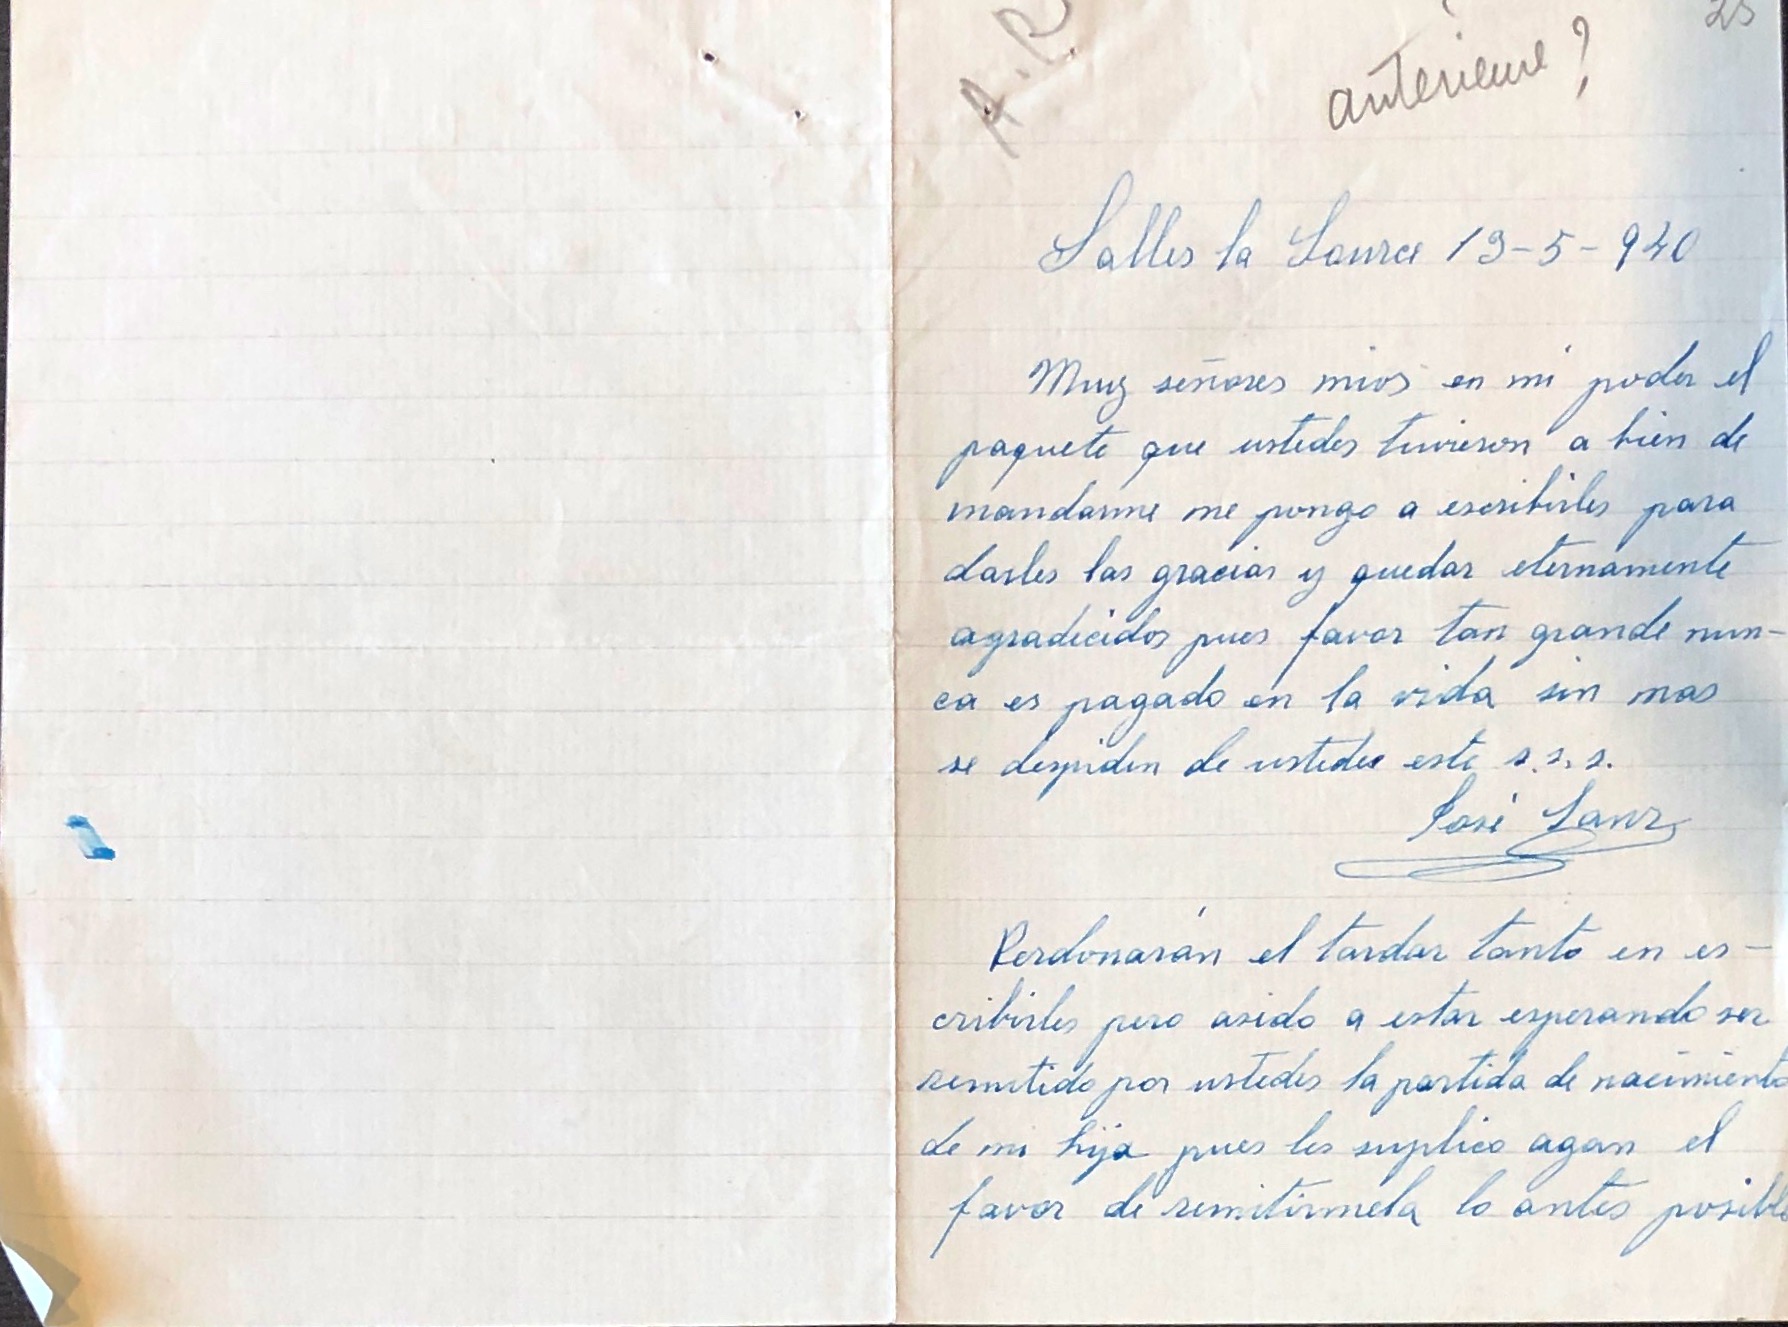 25
A.R
antérieure ?
Salles la Source 13-5-940
Muy señores mios en mi poder el
paquete que ustedes tuvieron a bien de
mandarme me pongo a escribirles para
darles las gracias y quedar eternamente
agradecidos pues favor tan grande nun-
ca es pagado en la vida sin mas
se despiden de ustedes este s.s.s.
José Sanz
Perdonarán el tardar tanto en es-
cribirles pero asido a estar esperando ser
remitido por ustedes la partida de nacimiento
de mi hija pues les suplico agan el
favor de remitirmela lo antes posible